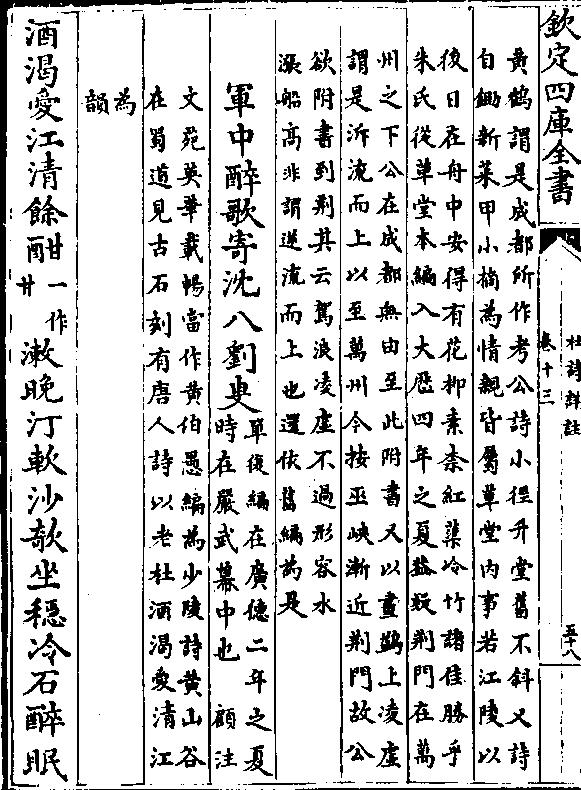 欽定四庫全書
杜詩詳註
卷十三
五十八
黃鶴謂是成都所作考公詩小徑升堂舊不斜又詩
自鋤新菜甲小摘為情親皆屬草堂內事若江陵以
後日在舟中安得有花柳素柰紅蕖冷竹諸佳勝乎
朱氏從草堂本編入大歷四年之夏益疑荆門在萬
州之下公在成都無由至此附書又以畫鷁上凌虛
謂是泝流而上以至萬州今按巫峽漸近荆門故公
欲附書到荆其云駕浪凌虛不過形容水
漲船高非謂逆流而上也還依舊編為是
軍中醉歌寄沈八劉叟
單復編在廣德二年之夏
時在嚴武幕中也 顧注
文苑英華載暢當作黃伯愚編為少陵詩黃山谷
在蜀道見古石刻有唐人詩以老杜酒渴愛清江
為
韻
酒渴愛江清餘酣
一作
甘
漱晚汀軟沙欹坐穩冷石醉眠